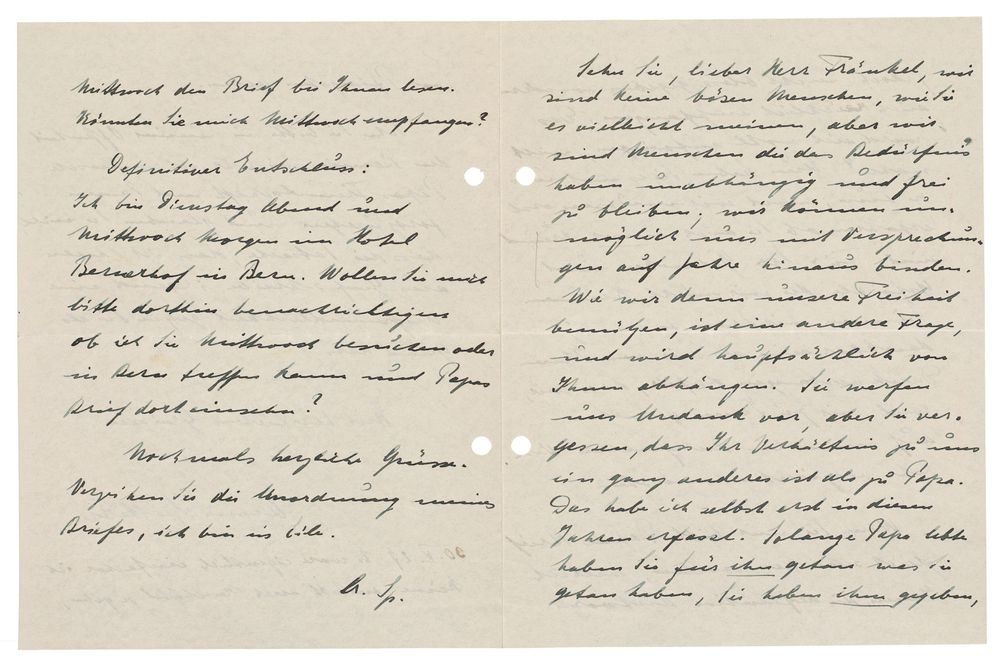 Mittwoch den Brief bei Ihnen lesen.
Könnten Sie mich Mittwoch empfangen?
Definitiver Entschluss:
Ich bin Dienstag Abend und
Mittwoch Morgen im Hotel
Bernerhof in Bern. Wollen Sie mich
bitte dorthin benachrichtigen
ob ich Sie Mittwoch besuchen oder
in Bern treffen kann und Papas
Brief dort einsehn?
Nochmals herzliche Grüsse.
Verzeihen Sie die Unordnung meines
Briefes, ich bin in Eile.
A. Sp.
Sehn Sie, lieber Herr Fränkel, wir
sind keine bösen Menschen, wie Sie
es vielleicht meinen, aber wir
sind Menschen die das Bedürfnis
haben unabhängig und frei
zu bleiben; wir können un-
möglich uns mit Versprechun-
gen auf Jahre hinaus binden.
Wie wir denn unsere Freiheit
benützen, ist eine andere Frage,
und wird haupfsächlich von
Ihnen abhängen. Sie werfen
uns Undank vor, aber Sie ver-
gessen, dass Ihr Verhältnis zu uns
ein ganz anderes ist als zu Papa.
Das habe ich selbst erst in diesen
Jahren erfasst. Solange Papa lebte
haben Sie für ihn getan was Sie
getan haben, Sie haben ihm gegeben,